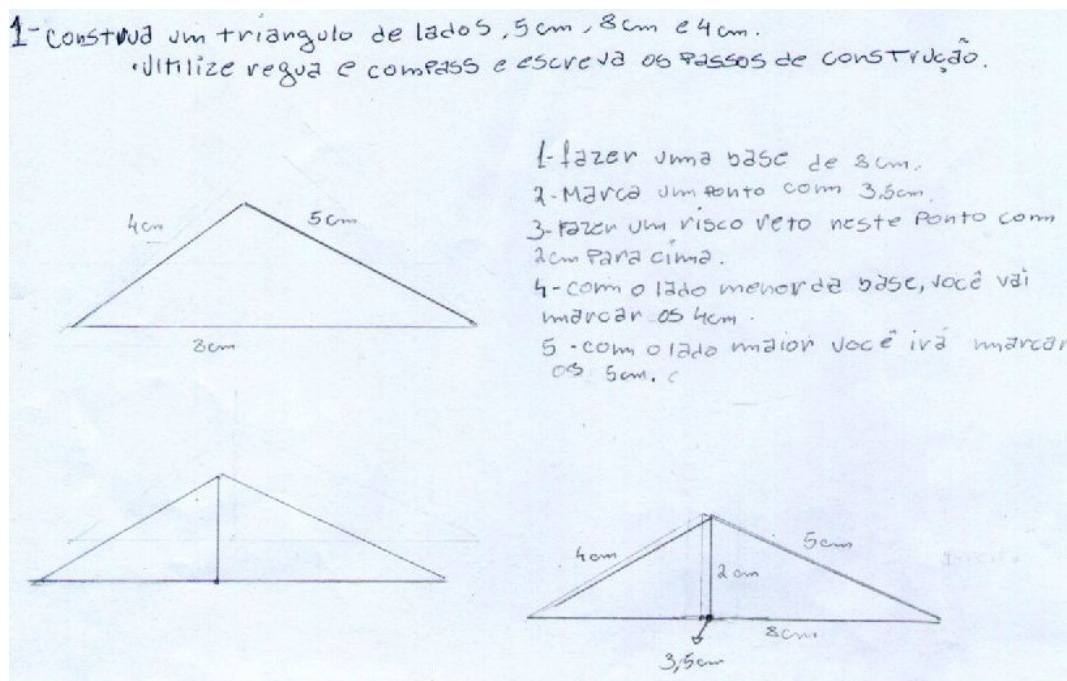 1- Construa um triangulo de lados, 5cm, 8cm e 4cm.
• Utilize regua e compass e escreva os passos de construção.
1- fazer uma base de 8cm.
2- Marca um ponto com 3,5cm.
3- Fazer um risco reto neste Ponto com
2cm Para cima.
4- com o lado menor da base, você vai
marcar os 4cm.
5- com o lado maior você irá marcar
os 5cm.
4cm
5cm
8cm
4cm
5cm
2cm
8cm
3,5cm